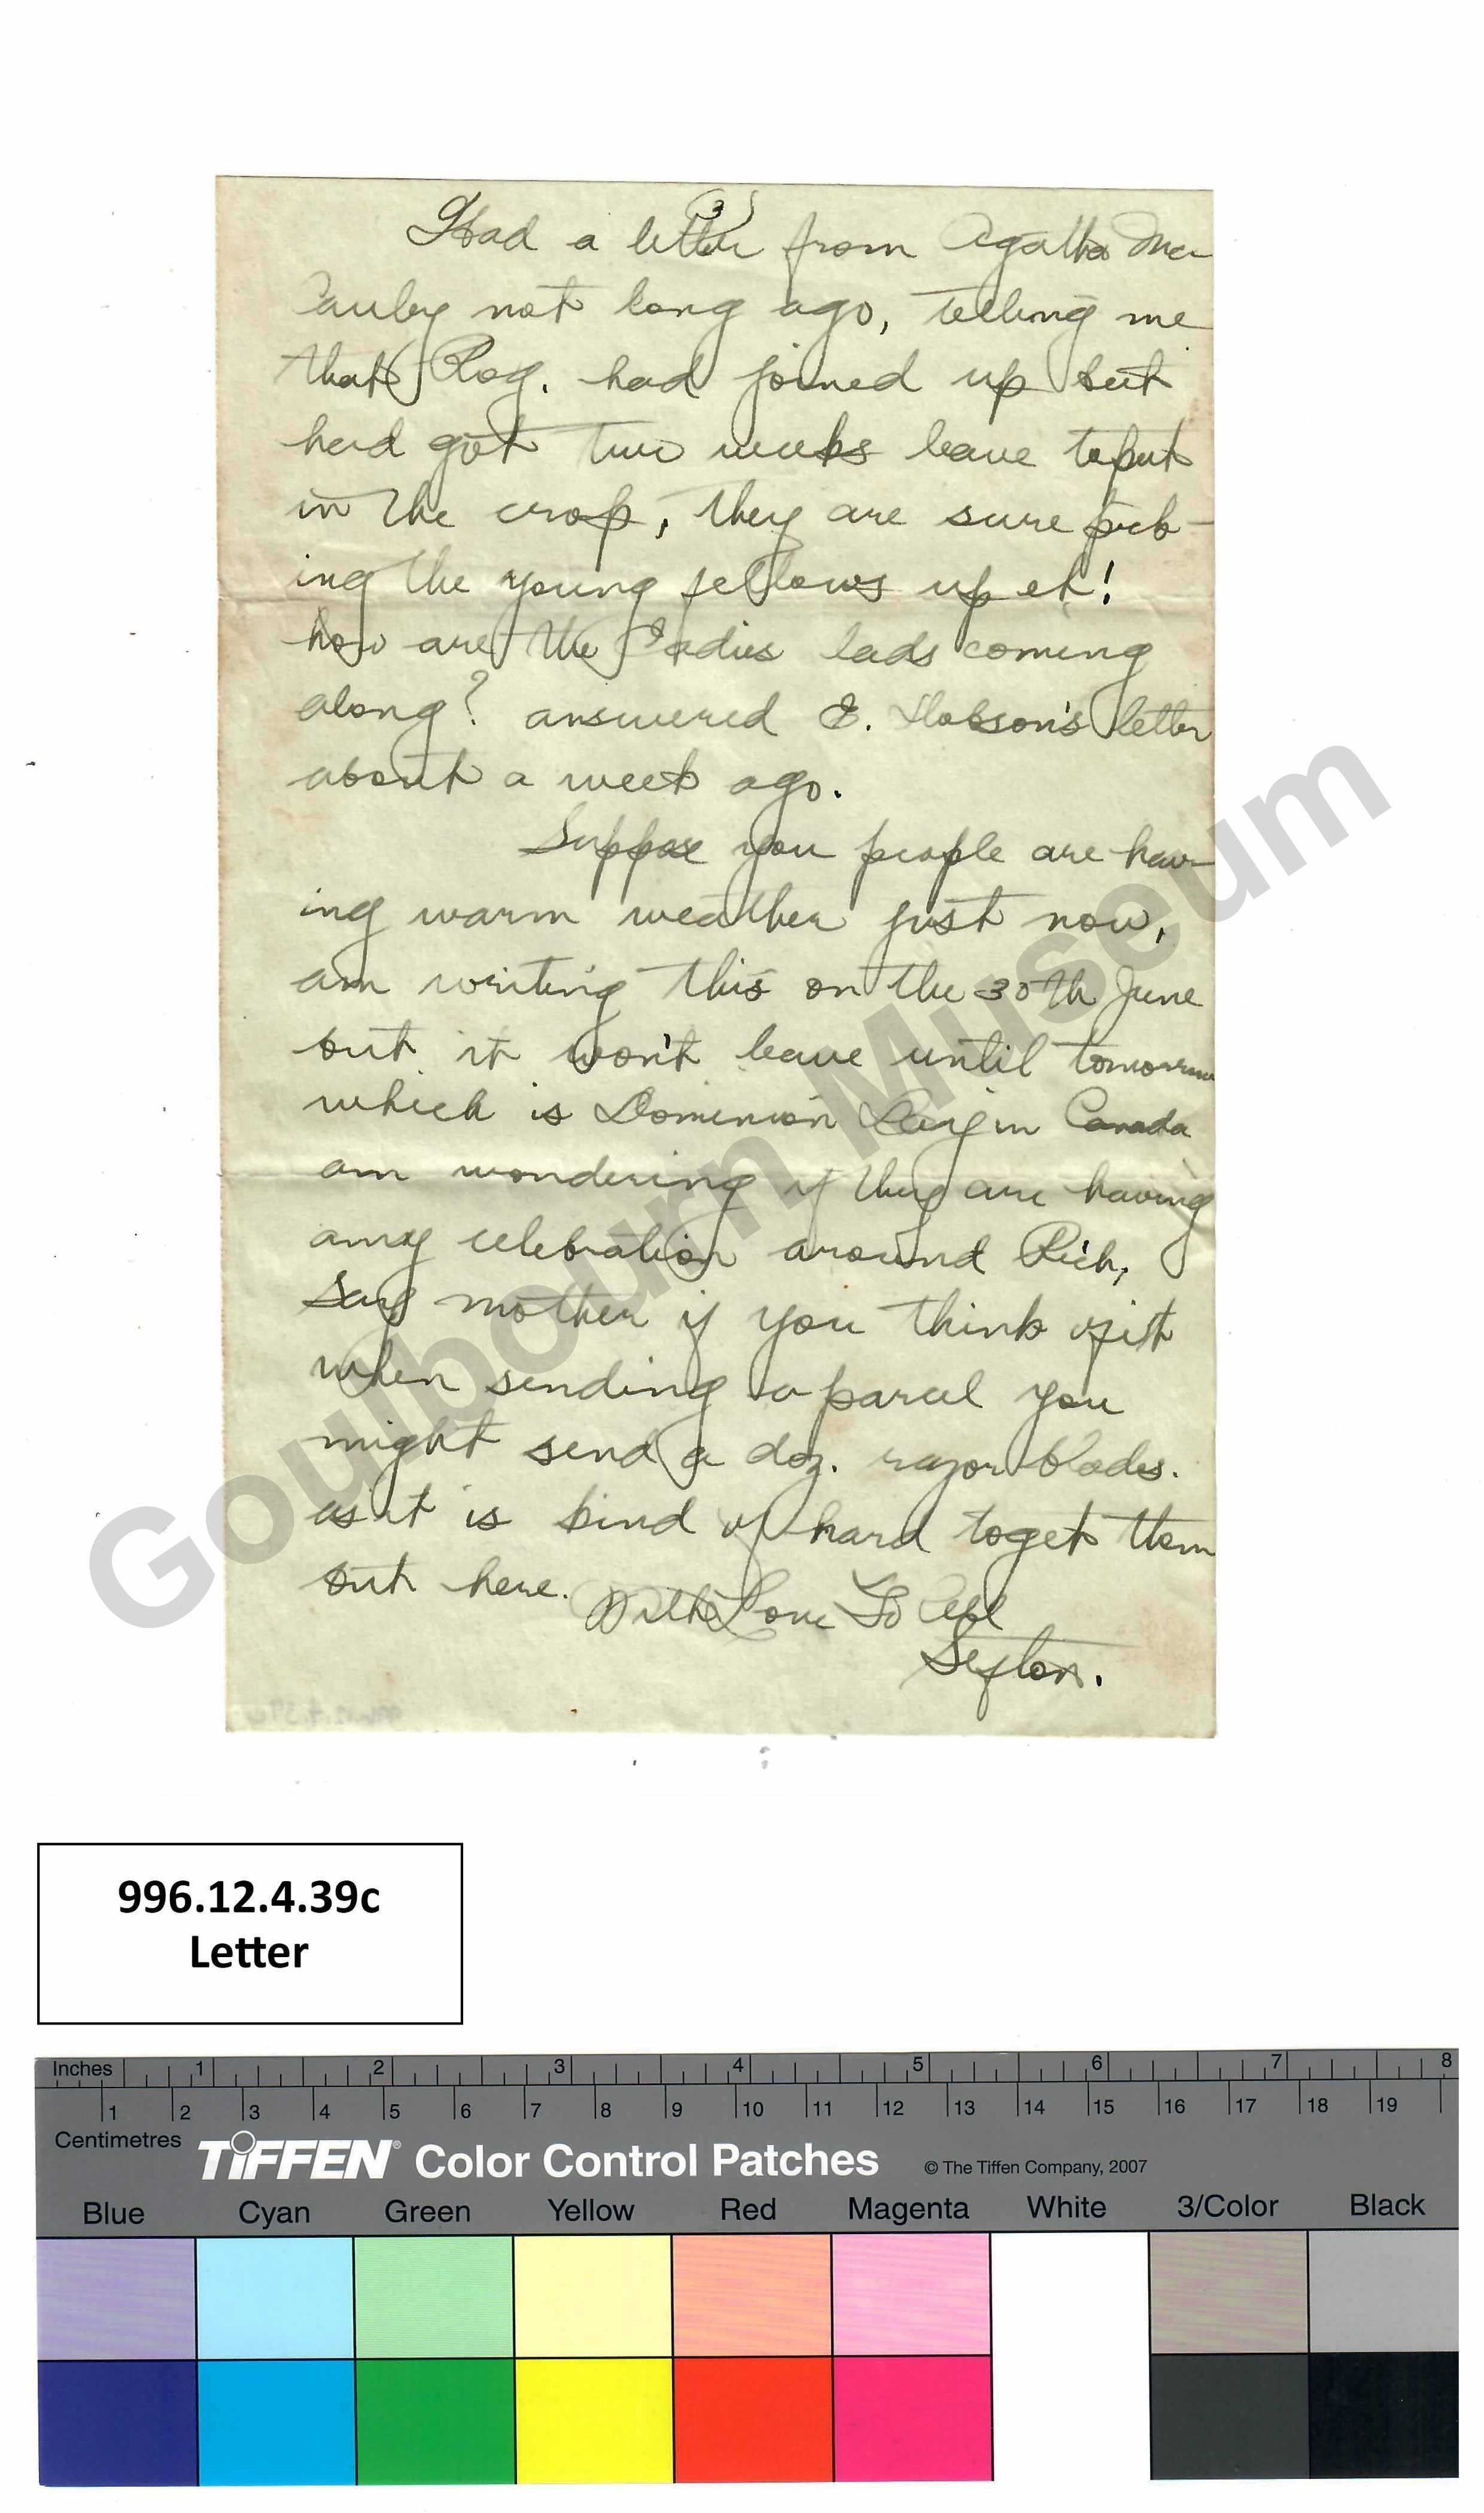 3
Had a letter from Agatha Mc
Cauley not long ago, telling me
that Roy. had joined up but
had got two weeks leave to put
in the crop, they are sure pick-
ing the young fellows up eh!
how are the lads coming
along? answered E. Hobson's letter
about a week ago.
Suppose you people are hav-
ing warm weather just now,
am writing this on the 30th June
but it won't leave until tomorrow
which is Dominion Day in Canada
am wondering if they are having
any celebration around Rich,
Say mother if you think of it
when sending a parcel you
might send a doz. razor blades.
as it is kind of hard to get them
out here. With Love To All
Sefton.
Goulbourn Museum
996.12.4.39c
Letter
Inches 1 2 3 4 5 6 7 8
1 2 3 4 5 6 7 8 9 10 11 12 13 14 15 16 17 18 19
Centimetres
TIFFEN® Color Control Patches © The Tiffen Company, 2007
Blue Cyan Green Yellow Red Magenta White 3/Color Black